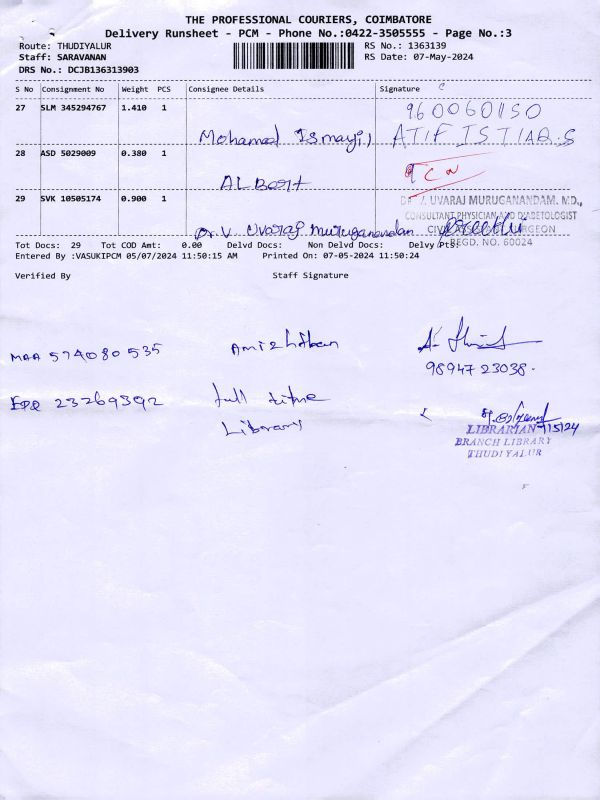 THE PROFESSIONAL COURIERS, COIMBATORE
Delivery Runsheet - PCM - Phone No.:0422-3505555 - Page No.:3
Route: THUDIYALUR RS No.: 1363139
Staff: SARAVANAN RS Date: 07-May-2024
DRS No.: DCJB136313903
S No Consignment No Weight PCS Consignee Details Signature
27 SLM 345294767 1.410 1 9600601150
Mohamed Ismayil ATIF ISTIAQ.S
28 ASD 5029009 0.380 1
ALBert
29 SVK 10505174 0.900 1 DR. V. UVARAJ MURUGANANDAM. M.D.,
CONSULTANT PHYSICIAN AND DIABETOLOGIST
Dr. V. Uvaraj Muruganandan CIVIL SURGEON
REGD. NO. 60024
Tot Docs: 29 Tot COD Amt: 0.00 Delvd Docs: Non Delvd Docs: Delvy Pts:
Entered By :VASUKIPCM 05/07/2024 11:50:15 AM Printed On: 07-05-2024 11:50:24
Verified By Staff Signature
MAA 574080535 Amizhthan
98947 23038.
EPQ 23269392 full time
Library
LIBRARIAN 7/5/24
BRANCH LIBRARY
THUDIYALUR